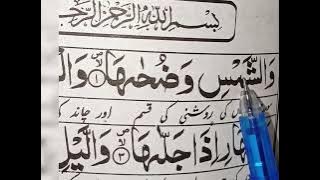 بِسْمِ اللهِ الرَّحْمٰنِ الرَّحِ
وَالشَّمْسِ وَضُحٰىهَا ۝١ وَالْ
کی روشنی کی قسم اور چاند کی
هَارِ اِذَا جَلّٰىهَا ۝٣ وَالَّيْلِ